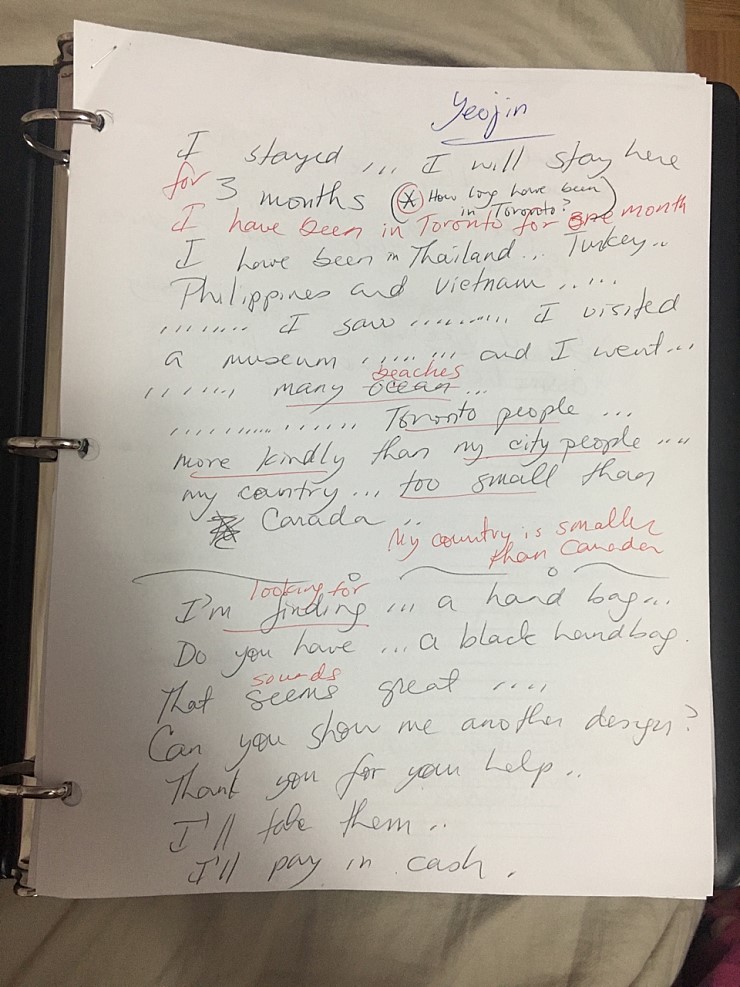 Yeojin
I stayed ... I will stay here
for 3 months (* How long have been
in Toronto?)
I have been in Toronto for one month
I have been in Thailand... Turkey..
Philippines and Vietnam .....
......... I saw .......... I visited
a museum ........ and I went...
beaches
...... many ocean ...
................ Toronto people ...
more kindly than my city people ....
my country ... too small than
Canada ..
My country is smaller
than Canada
looking for
I'm finding ... a hand bag...
Do you have ... a black handbag.
sounds
That seems great ....
Can you show me another design?
Thank you for your help ..
I'll take them ..
I'll pay in cash.